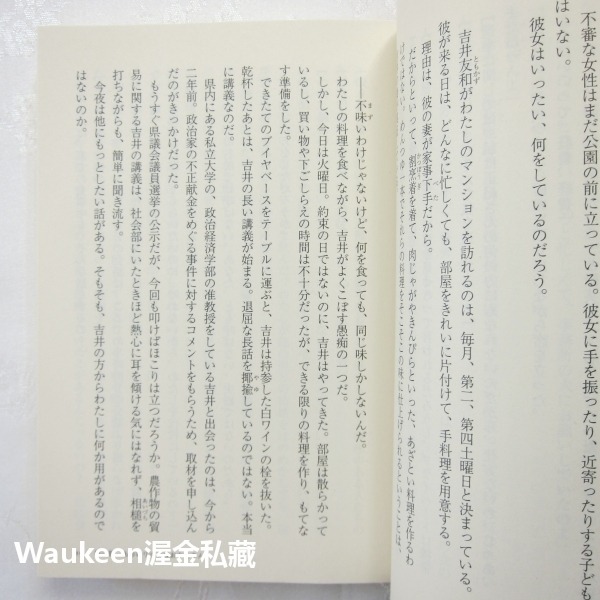 不審な女性はまだ公園の前に立っている。彼女に手を振ったり、近寄ったりする子ども
はいない。
彼女はいったい、何をしているのだろう。
吉井友和がわたしのマンションを訪れるのは、毎月、第二、第四土曜日と決まっている。
彼が来る日は、どんなに忙しくても、部屋をきれいに片付けて、手料理を用意する。
理由は、彼の妻が家事下手だから。
だからといって、割烹着を着て、肉じゃがやきんぴらといった、あざとい料理を作るわ
けではない。めんつゆ一本でそれらの料理をそこそこの味に仕上げられるということは、
――不味いわけじゃないけど、何を食っても、同じ味しかしないんだ。
わたしの料理を食べながら、吉井がよくこぼす愚痴の一つだ。
しかし、今日は火曜日。約束の日ではないのに、吉井はやってきた。部屋は散らかって
いるし、買い物や下ごしらえの時間は不十分だったが、できる限りの料理を作り、もてな
す準備をした。
できたてのブイヤベースをテーブルに運ぶと、吉井は持参した白ワインの栓を抜いた。
乾杯したあとは、吉井の長い講義が始まる。退屈な長話を揶揄しているのではない。本当
に講義なのだ。
県内にある私立大学の、政治経済学部の准教授をしている吉井と出会ったのは、今から
二年前。政治家の不正献金をめぐる事件に対するコメントをもらうため、取材を申し込ん
だのがきっかけだった。
もうすぐ県議会議員選挙の公示だが、今回も叩けばほこりは立つだろうか。農作物の貿
易に関する吉井の講義は、社会部にいたときほど熱心に耳を傾ける気にはなれず、相槌を
打ちながらも、簡単に聞き流す。
今夜は他にもっとしたい話がある。そもそも、吉井の方からわたしに何か用があるので
はないのか。
Waukeen渥金私藏